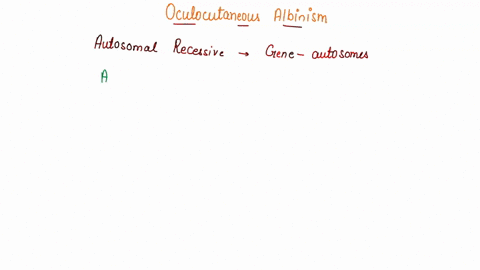 Oculocutaneous Albinism
Autosomal Recessive → Gene - autosomes
A